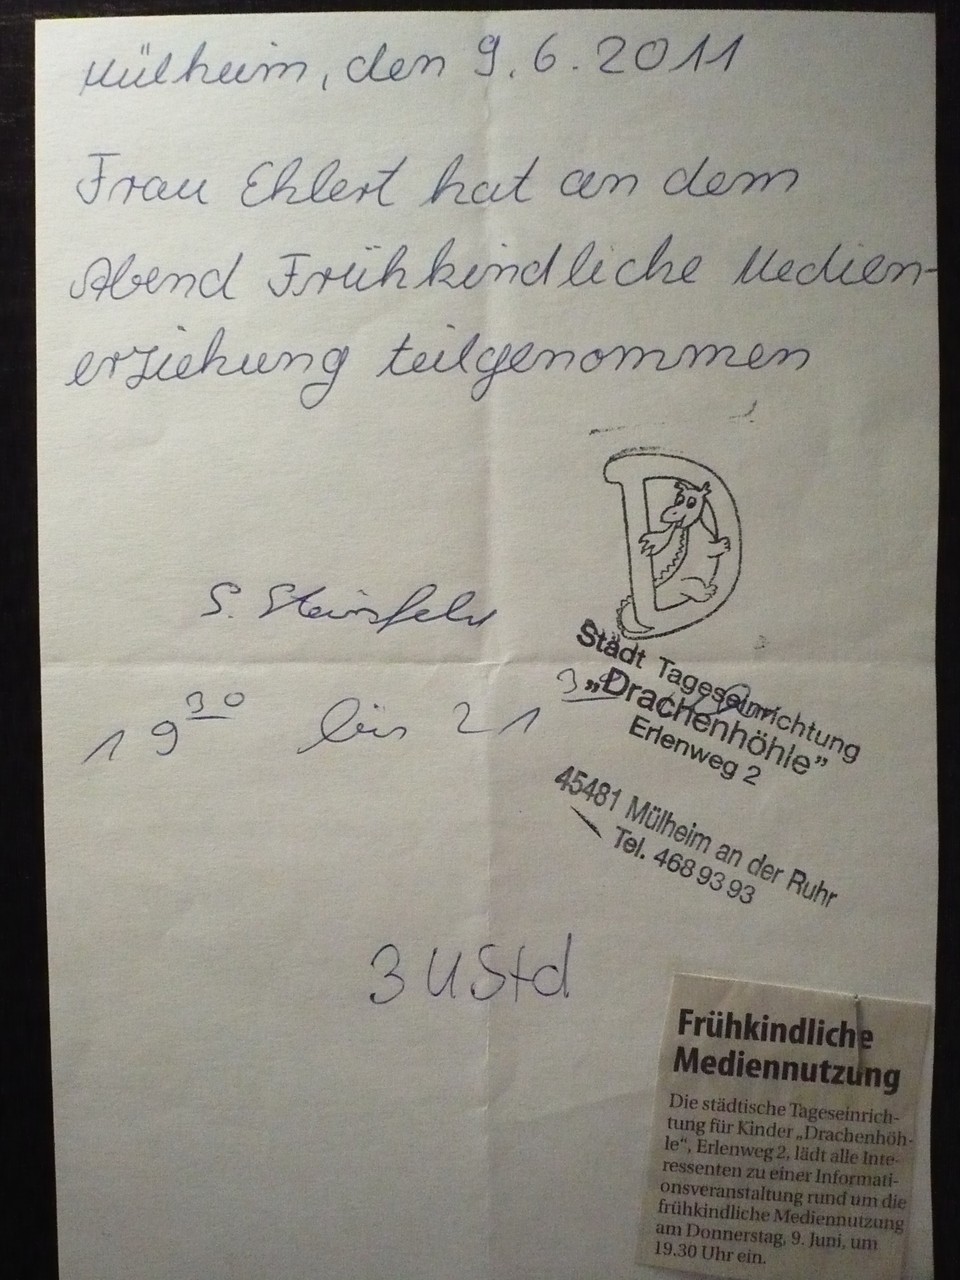 Mülheim, den 9.6.2011
Frau Ehlert hat an dem
Abend Frühkindliche Medien-
erziehung teilgenommen
S. Steinsfeld
19 30 bis 21 30 Uhr
Städt Tageseinrichtung
„Drachenhöhle”
Erlenweg 2
45481 Mülheim an der Ruhr
Tel. 468 93 93
3 UStd
Frühkindliche
Mediennutzung
Die städtische Tageseinrich-
tung für Kinder „Drachenhöh-
le“, Erlenweg 2, lädt alle Inte-
ressenten zu einer Informati-
onsveranstaltung rund um die
frühkindliche Mediennutzung
am Donnerstag, 9. Juni, um
19.30 Uhr ein.